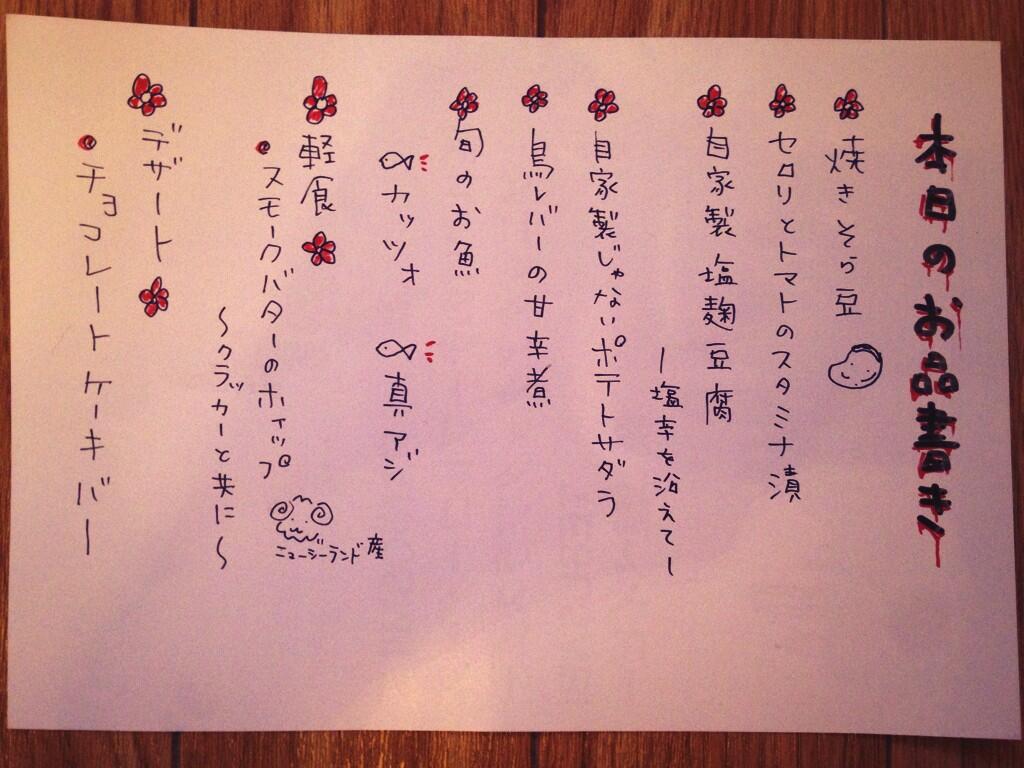 本日のお品書き
焼きそら豆
セロリとトマトのスタミナ漬
自家製塩麹豆腐
ー塩辛を浴えてー
自家製じゃないポテトサダラ
鳥レバーの甘辛煮
旬のお魚
カッツォ
真アジ
軽食
スモークバターのホイップ
ニュージーランド産
〜クラッカーと共に〜
デザート
チョコレートケーキバー